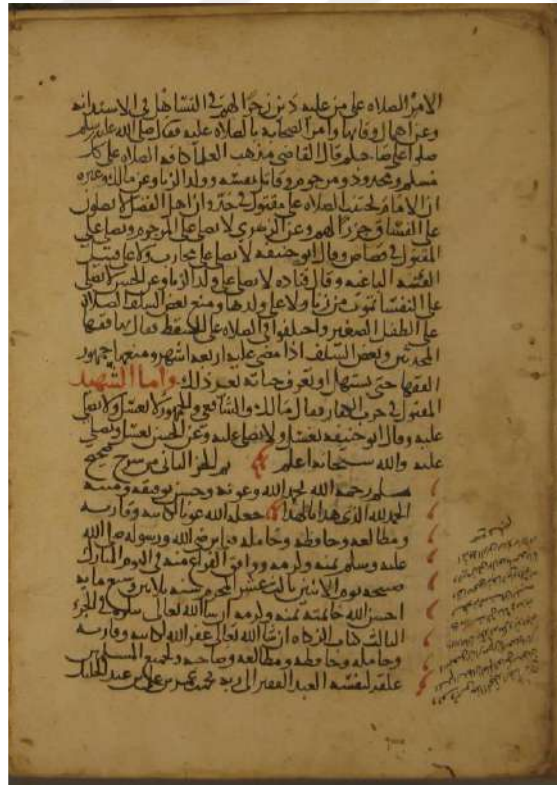 الامر الصلاه على من عليه دين زجرا لهم في التساهل في الاستدانه
وعن اهمال وفايها وامر الصحابه بالصلاه عليه فقال صلى الله عليه وسلم
صلوا على صاحبكم قال القاضي مذهب العلما كافه الصلاه على كل
مسلم ومحدود ومرجوم وقاتل نفسه وولد الزنا وعن مالك وغيره
ان الامام يجتنب الصلاه على مقتول في حد وان اهل الفضل لا يصلون
على الفساق زجرا لهم وعن الزهري لا يصلى على المرجوم ويصلى على
المقتول في قصاص وقال ابو حنيفه لا يصلى على محارب ولا على قتيل
الفئه الباغيه وقال قتاده لا يصلى على ولد الزنا وعن الحسن لا يصلى
على النفسا تموت من زنا ولا على ولدها ومنع بعض السلف الصلاه
على الطفل الصغير واختلفوا في الصلاه على السقط فقال بها فقها
المحدثين وبعض السلف اذا مضى عليه اربعه اشهر ومنعها جمهور
الفقها حتى يستهل او تعرف حياته بغير ذلك واما الشهيد
المقتول في حرب الكفار فقال مالك والشافعي والجمهور لا يغسل ولا يصلى
عليه وقال ابو حنيفه يغسل ولا يصلى عليه وعن الحسن يغسل ويصلى
عليه والله سبحانه اعلم تم الجزء الثاني من شرح صحيح
مسلم رحمه الله بحمد الله وعونه وحسن توفيقه ومنه
الحمد لله الذي هدانا لهذا جعله الله عونا لكاتبه وقاريه
ومطالعه وحافظه وحامله فيما يرضي الله ورسوله صلى الله
عليه وسلم بمنه وكرمه ووافق الفراغ منه في اليوم المبارك
صبيحه يوم الاثنين ثالث عشر المحرم سنه وسبع مايه
احسن الله خاتمته بمنه وكرمه ان شا الله تعالى يتلوه في الجزء
الثالث كتاب الزكاه ان شا الله تعالى غفر الله لكاتبه وقاريه
وحامله وحافظه ومطالعه وصاحبه ولجميع المسلمين
علقه لنفسه العبد الفقير الى ربه محمد بن علي بن عبد